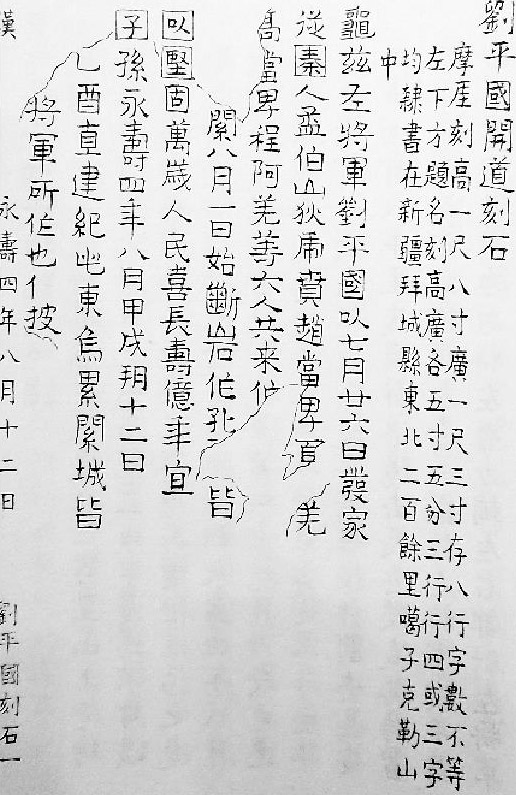 劉平國開道刻石
摩厓刻高一尺八寸廣一尺三寸存八行字數不等
左下方題名刻高廣各五寸五分三行行四或三字
均隸書在新疆拜城縣東北二百餘里噶子克勒山
中
龜茲左將軍劉平國以七月廿六日發家
從秦人孟伯山狄虎賁趙當卑 羌
當卑程阿羌等六人共来作
關八月一日始斷岩作孔 皆
以堅固萬歲人民喜長壽億年宜
子孫永壽四年八月甲戌朔十二日
乙酉直建紀此東烏累關城皆
將軍所作也亻披
漢 永壽四年八月十二日 劉平國刻石一